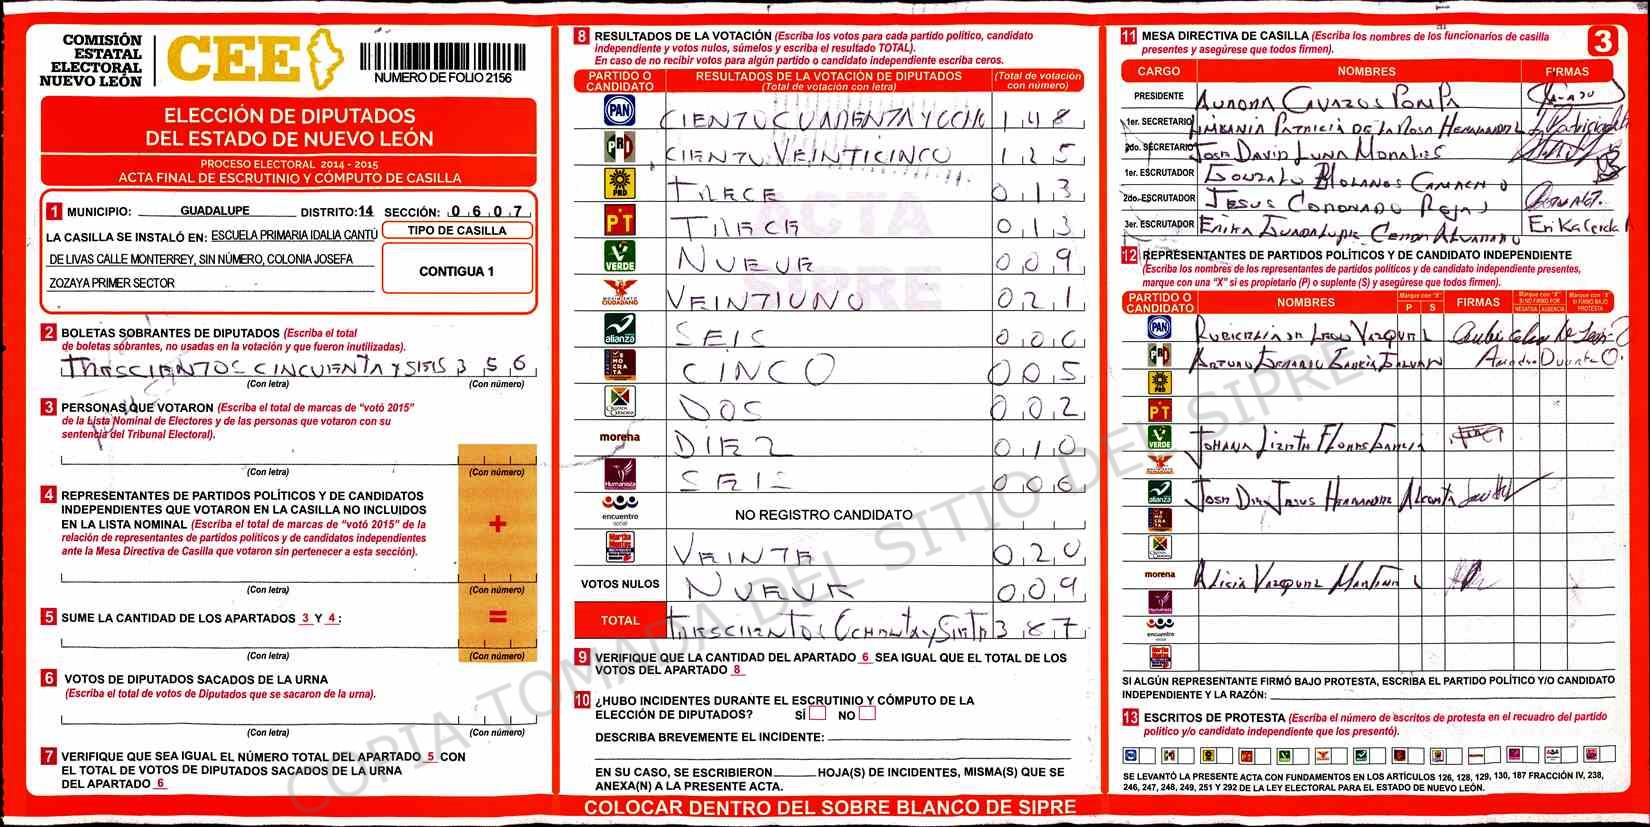 COMISIÓN
ESTATAL
ELECTORAL
NUEVO LEÓN
CEE
NUMERO DE FOLIO 2156
ELECCIÓN DE DIPUTADOS
DEL ESTADO DE NUEVO LEÓN
PROCESO ELECTORAL 2014 - 2015
ACTA FINAL DE ESCRUTINIO Y CÓMPUTO DE CASILLA
1 MUNICIPIO: GUADALUPE DISTRITO:14 SECCIÓN: 0 6 0 7
LA CASILLA SE INSTALÓ EN: ESCUELA PRIMARIA IDALIA CANTÚ
DE LIVAS CALLE MONTERREY, SIN NÚMERO, COLONIA JOSEFA
ZOZAYA PRIMER SECTOR
TIPO DE CASILLA
CONTIGUA 1
2 BOLETAS SOBRANTES DE DIPUTADOS (Escriba el total
de boletas sobrantes, no usadas en la votación y que fueron inutilizadas).
TRESCIENTOS CINCUENTA Y SEIS 3 5 6
(Con letra) (Con número)
3 PERSONAS QUE VOTARON (Escriba el total de marcas de "votó 2015"
de la Lista Nominal de Electores y de las personas que votaron con su
sentencia del Tribunal Electoral).
(Con letra) (Con número)
4 REPRESENTANTES DE PARTIDOS POLÍTICOS Y DE CANDIDATOS
INDEPENDIENTES QUE VOTARON EN LA CASILLA NO INCLUIDOS
EN LA LISTA NOMINAL (Escriba el total de marcas de "votó 2015" de la
relación de representantes de partidos políticos y de candidatos independientes
ante la Mesa Directiva de Casilla que votaron sin pertenecer a esta sección).
+
(Con letra) (Con número)
5 SUME LA CANTIDAD DE LOS APARTADOS 3 Y 4:
=
(Con letra) (Con número)
6 VOTOS DE DIPUTADOS SACADOS DE LA URNA
(Escriba el total de votos de Diputados que se sacaron de la urna).
(Con letra) (Con número)
7 VERIFIQUE QUE SEA IGUAL EL NÚMERO TOTAL DEL APARTADO 5 CON
EL TOTAL DE VOTOS DE DIPUTADOS SACADOS DE LA URNA
DEL APARTADO 6
8 RESULTADOS DE LA VOTACIÓN (Escriba los votos para cada partido político, candidato
independiente y votos nulos, súmelos y escriba el resultado TOTAL).
En caso de no recibir votos para algún partido o candidato independiente escriba ceros.
PARTIDO O CANDIDATO RESULTADOS DE LA VOTACIÓN DE DIPUTADOS (Total de votación con letra) (Total de votación con número)
PAN CIENTO CUARENTA Y OCHO 1 4 8
PRD CIENTO VEINTICINCO 1 2 5
PRD TRECE 0 1 3
PT TRECE 0 1 3
VERDE NUEVE 0 0 9
MOVIMIENTO CIUDADANO VEINTIUNO 0 2 1
alianza SEIS 0 0 6
DEMOCRATA CINCO 0 0 5
DOS 0 0 2
morena DIEZ 0 1 0
Humanista SEIS 0 0 6
encuentro social NO REGISTRO CANDIDATO
VEINTE 0 2 0
VOTOS NULOS NUEVE 0 0 9
TOTAL TRESCIENTOS OCHENTA Y SIETE 3 8 7
ACTA
SIPRE
9 VERIFIQUE QUE LA CANTIDAD DEL APARTADO 6 SEA IGUAL QUE EL TOTAL DE LOS
VOTOS DEL APARTADO 8
10 ¿HUBO INCIDENTES DURANTE EL ESCRUTINIO Y CÓMPUTO DE LA
ELECCIÓN DE DIPUTADOS? SÍ NO
DESCRIBA BREVEMENTE EL INCIDENTE:
EN SU CASO, SE ESCRIBIERON HOJA(S) DE INCIDENTES, MISMA(S) QUE SE
ANEXA(N) A LA PRESENTE ACTA.
COLOCAR DENTRO DEL SOBRE BLANCO DE SIPRE
11 MESA DIRECTIVA DE CASILLA (Escriba los nombres de los funcionarios de casilla
presentes y asegúrese que todos firmen).
3
CARGO NOMBRES FIRMAS
PRESIDENTE AURORA CAVAZOS POMPA
1er. SECRETARIO PATRICIA DE LA ROSA HERNANDEZ
2do. SECRETARIO JOSE DAVID LUNA MORALES
1er. ESCRUTADOR GONZALO BOLAÑOS CAMACHO
2do. ESCRUTADOR JESUS CORONADO ROJAS
3er. ESCRUTADOR ERIKA GUADALUPE CERDA ALVARADO Erika Cerda
12 REPRESENTANTES DE PARTIDOS POLÍTICOS Y DE CANDIDATO INDEPENDIENTE
(Escriba los nombres de los representantes de partidos políticos y de candidato independiente presentes,
marque con una "X" si es propietario (P) o suplente (S) y asegúrese que todos firmen).
PARTIDO O CANDIDATO NOMBRES Marque con "X" P S FIRMAS Marque con "X" SI NO FIRMÓ POR NEGATIVA AUSENCIA Marque con "X" SI FIRMÓ BAJO PROTESTA
PAN DE LEON VAZQUEZ
ARTURO GARCIA
PRD
PT
VERDE JOHANA LIZETH FLORES GARCIA
alianza JOSE DE JESUS HERNANDEZ
morena ALICIA VAZQUEZ MARTINEZ
encuentro social
SI ALGÚN REPRESENTANTE FIRMÓ BAJO PROTESTA, ESCRIBA EL PARTIDO POLÍTICO Y/O CANDIDATO
INDEPENDIENTE Y LA RAZÓN:
13 ESCRITOS DE PROTESTA (Escriba el número de escritos de protesta en el recuadro del partido
político y/o candidato independiente que los presentó).
SE LEVANTÓ LA PRESENTE ACTA CON FUNDAMENTOS EN LOS ARTÍCULOS 126, 128, 129, 130, 187 FRACCIÓN IV, 238,
246, 247, 248, 249, 251 Y 292 DE LA LEY ELECTORAL PARA EL ESTADO DE NUEVO LEÓN.
COPIA TOMADA DEL SITIO DEL SIPRE